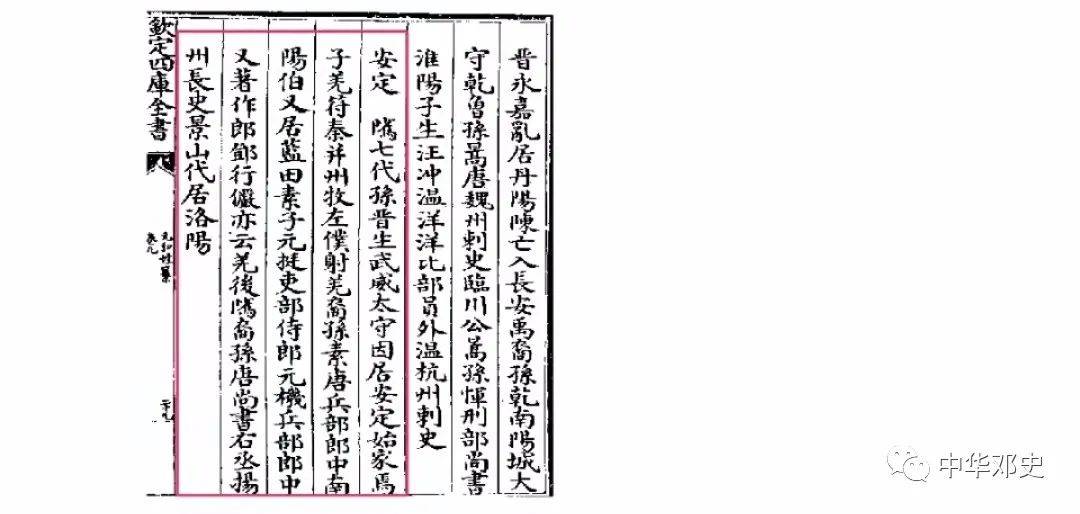 晋永嘉亂居丹陽陳亡入長安禹裔孫乾南陽城大
守乾曾孫暠唐魏州刺史臨川公暠孫惲刑部尚書
淮陽子生汪冲温洋洋比部員外温杭州刺史
安定 隲七代孫晋生武威太守因居安定始家焉
子羌苻秦并州牧左僕射羌裔孫素唐兵部郎中南
陽伯又居藍田素子元挺吏部侍郎元機兵部郎中
又著作郎鄧行儼亦云羌後隲裔孫唐尚書右丞揚
州長史景山代居洛陽
欽定四庫全書
元和姓纂
卷九
二十九
中华邓史